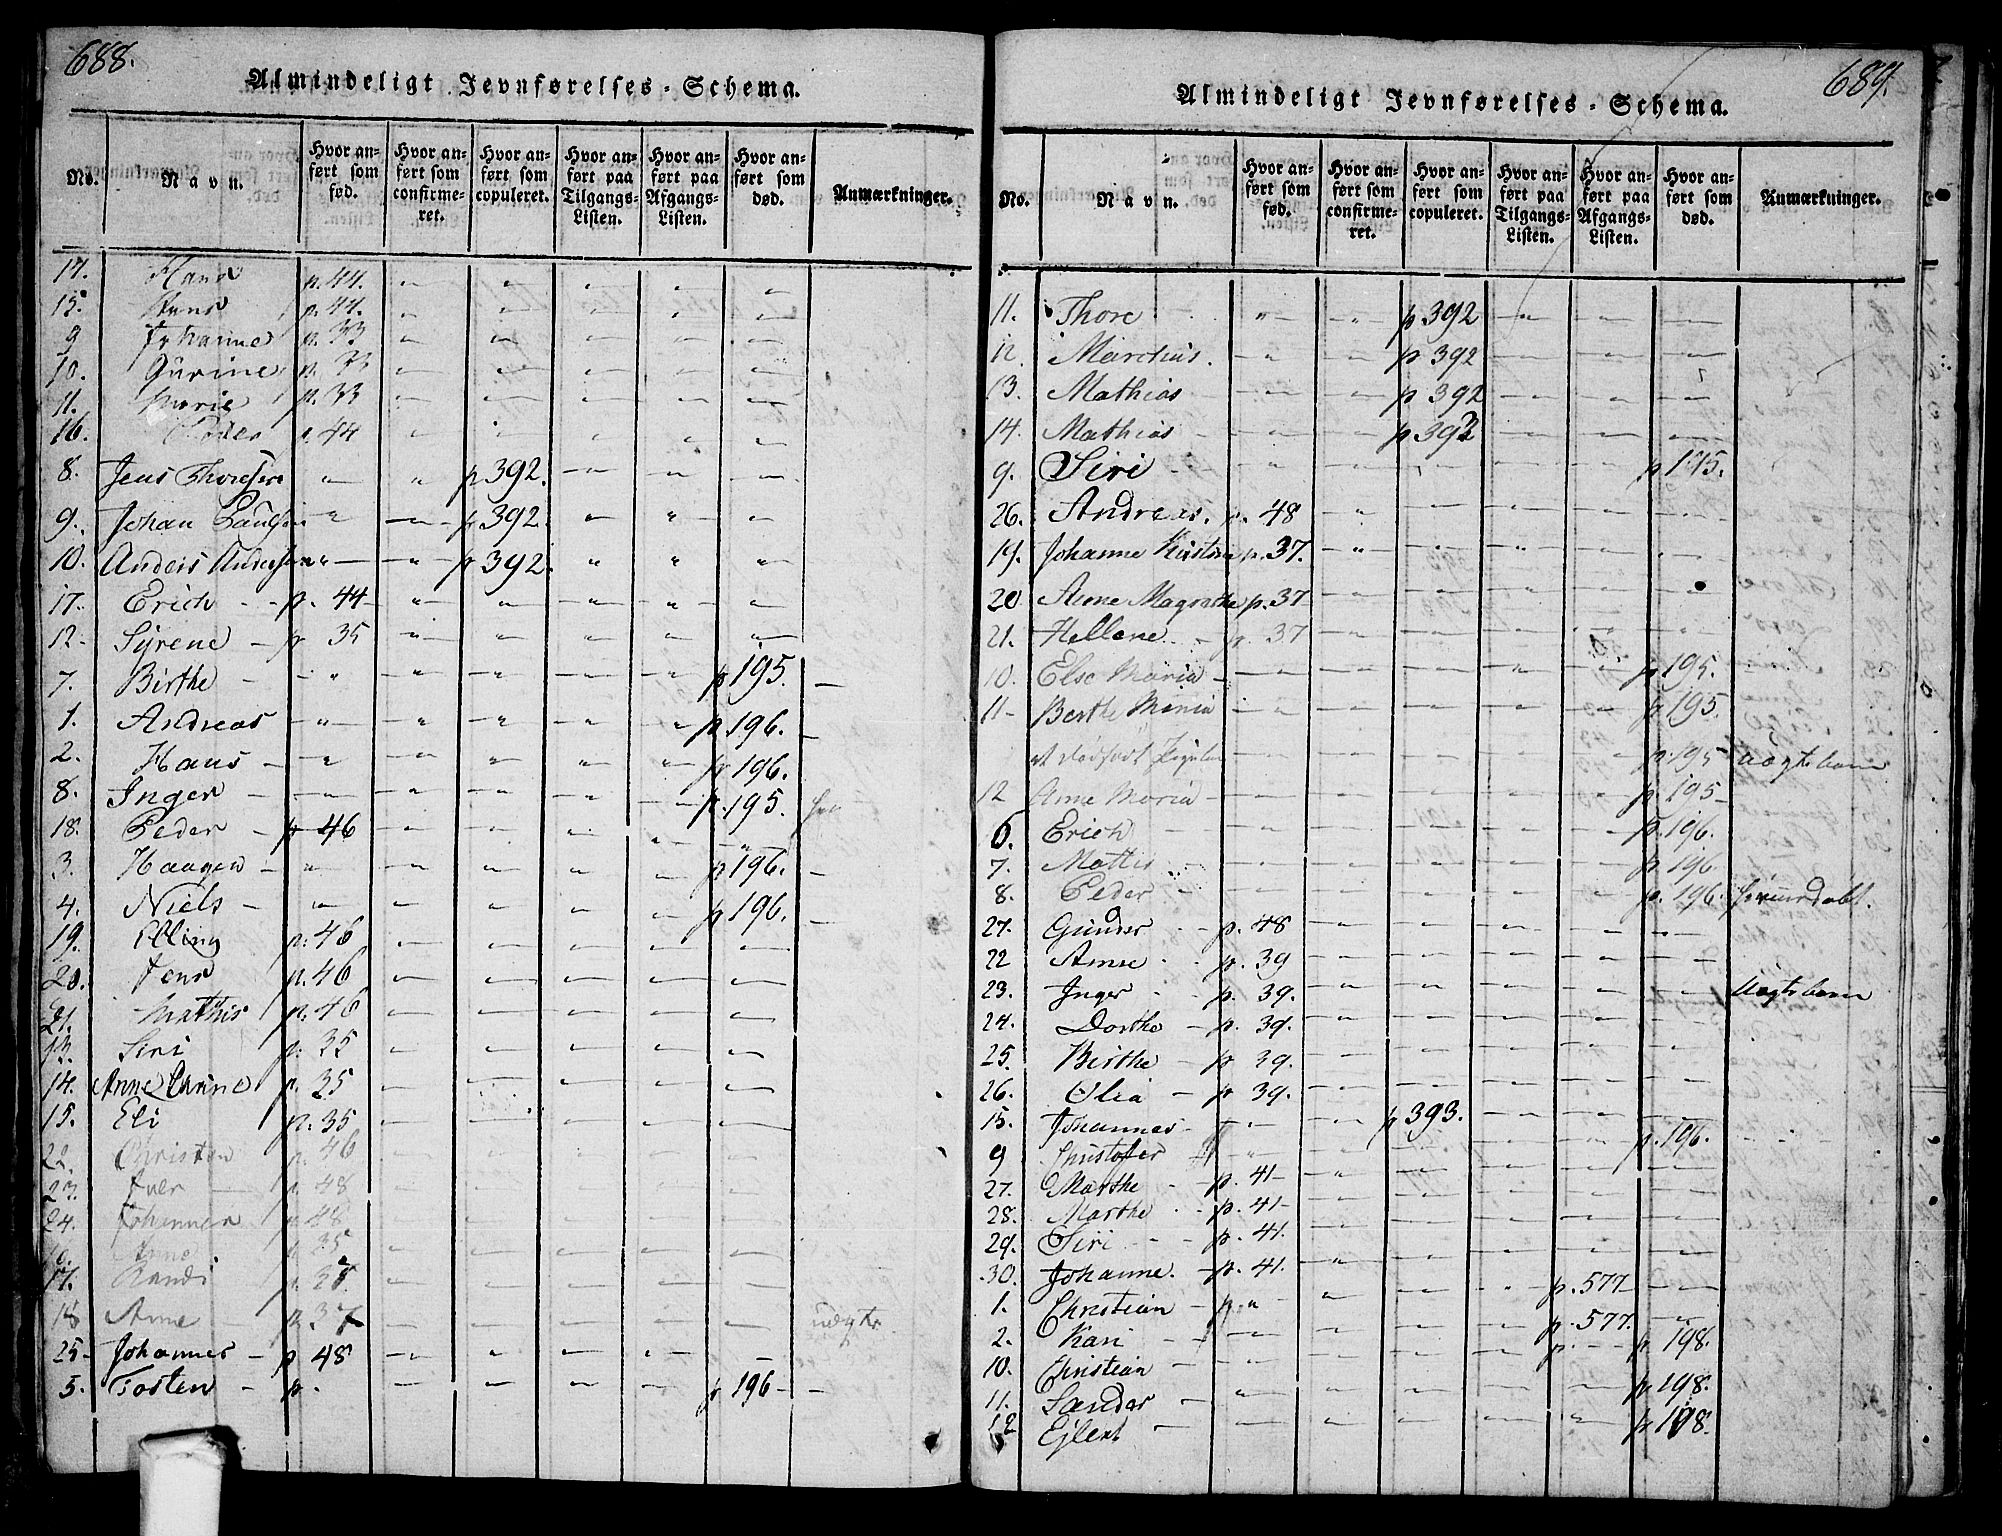 688.
Almindeligt Jevnførelses-Schema.
No. Navn. Hvor anført som fød. Hvor anført som confirmeret. Hvor anført som copuleret. Hvor anført paa Tilgangs-Listen. Hvor anført paa Afgangs-Listen. Hvor anført som død. Anmærkninger.
14. Hans p. 44.
15. p. 44.
9 Johanne p. 33
10. Gurine p. 33
11. Marie p. 33
16. Peder p. 44
8. Jens p. 392.
9. Johan p. 392.
10. Anders Andersen p. 392.
17. Erich p. 44
12 Syrene p. 35
7. Birthe p 195.
1. Andreas p. 196.
2. Hans p 196.
8. Inger p. 195.
18. Peder p 46
3. Haagen p 196.
4. Niels p 196.
19. Elling p. 46
20. Jens p. 46
21. Mathis p. 46
13. Siri p. 35
14. Anne Carine p. 35
15. Eli p. 35
22. Christen p. 46
23. Iver p. 48
24. Johannes p. 48
16. Anne p. 35
17. Randi
18 Anne p. 37
25 Johannes p 48
5. Tosten p. p 196
689.
Almindeligt Jevnførelses-Schema.
No. Navn. Hvor anført som fød. Hvor anført som confirmeret. Hvor anført som copuleret. Hvor anført paa Tilgangs-Listen. Hvor anført paa Afgangs-Listen. Hvor anført som død. Anmærkninger.
11. Thore p 392
12. p 392
13. Mathias p 392
14. Mathias
9. Siri p 195.
26. Andreas. p. 48
19. Johanne p. 37.
20 Anne Magrethe p. 37
21. Hellene p. 37
10. Else Maria p 195.
11 Berthe p 195.
p. 195 Uægtebarn
12 Anne Maria p. 195
6. Erich p. 196.
7. Mattis p. 196
8. Peder p. 196.
27. Gunder p. 48
22 Anne p. 39
23. Inger p. 39. Uægtebarn
24. Dorthe p. 39.
25. Birthe p 39.
26. Olia p 39.
15. Johannes p 393.
9 Christoffer p. 196.
27. Marthe p. 41
28. Marthe p. 41
29. Siri p. 41.
30. Johanne. p. 41.
1. Christian p. p. 577
2. Kari p. 577.
10. Christian p. p. 198.
11. Sander p 198.
12 Ejlert p 198.